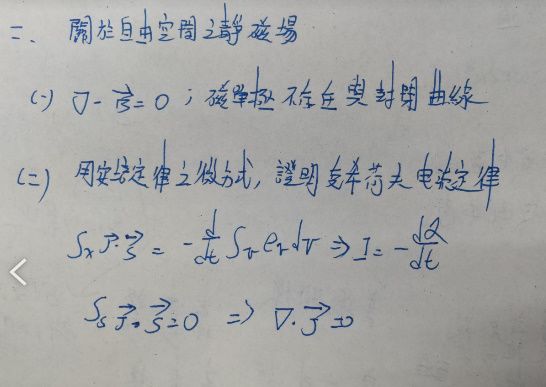 二、關於自由空間之靜磁場
(一) ∇·B⃗=0;磁單極不存在與封閉曲線
(二) 用安培定律之微方式,證明克希荷夫電流定律
∫ₛJ⃗·S⃗ = -d/dt ∫ᵥ ρᵥdv ⇒ I = -dQ/dt
∫ₛJ⃗·S⃗=0 ⇒ ∇·J⃗=0